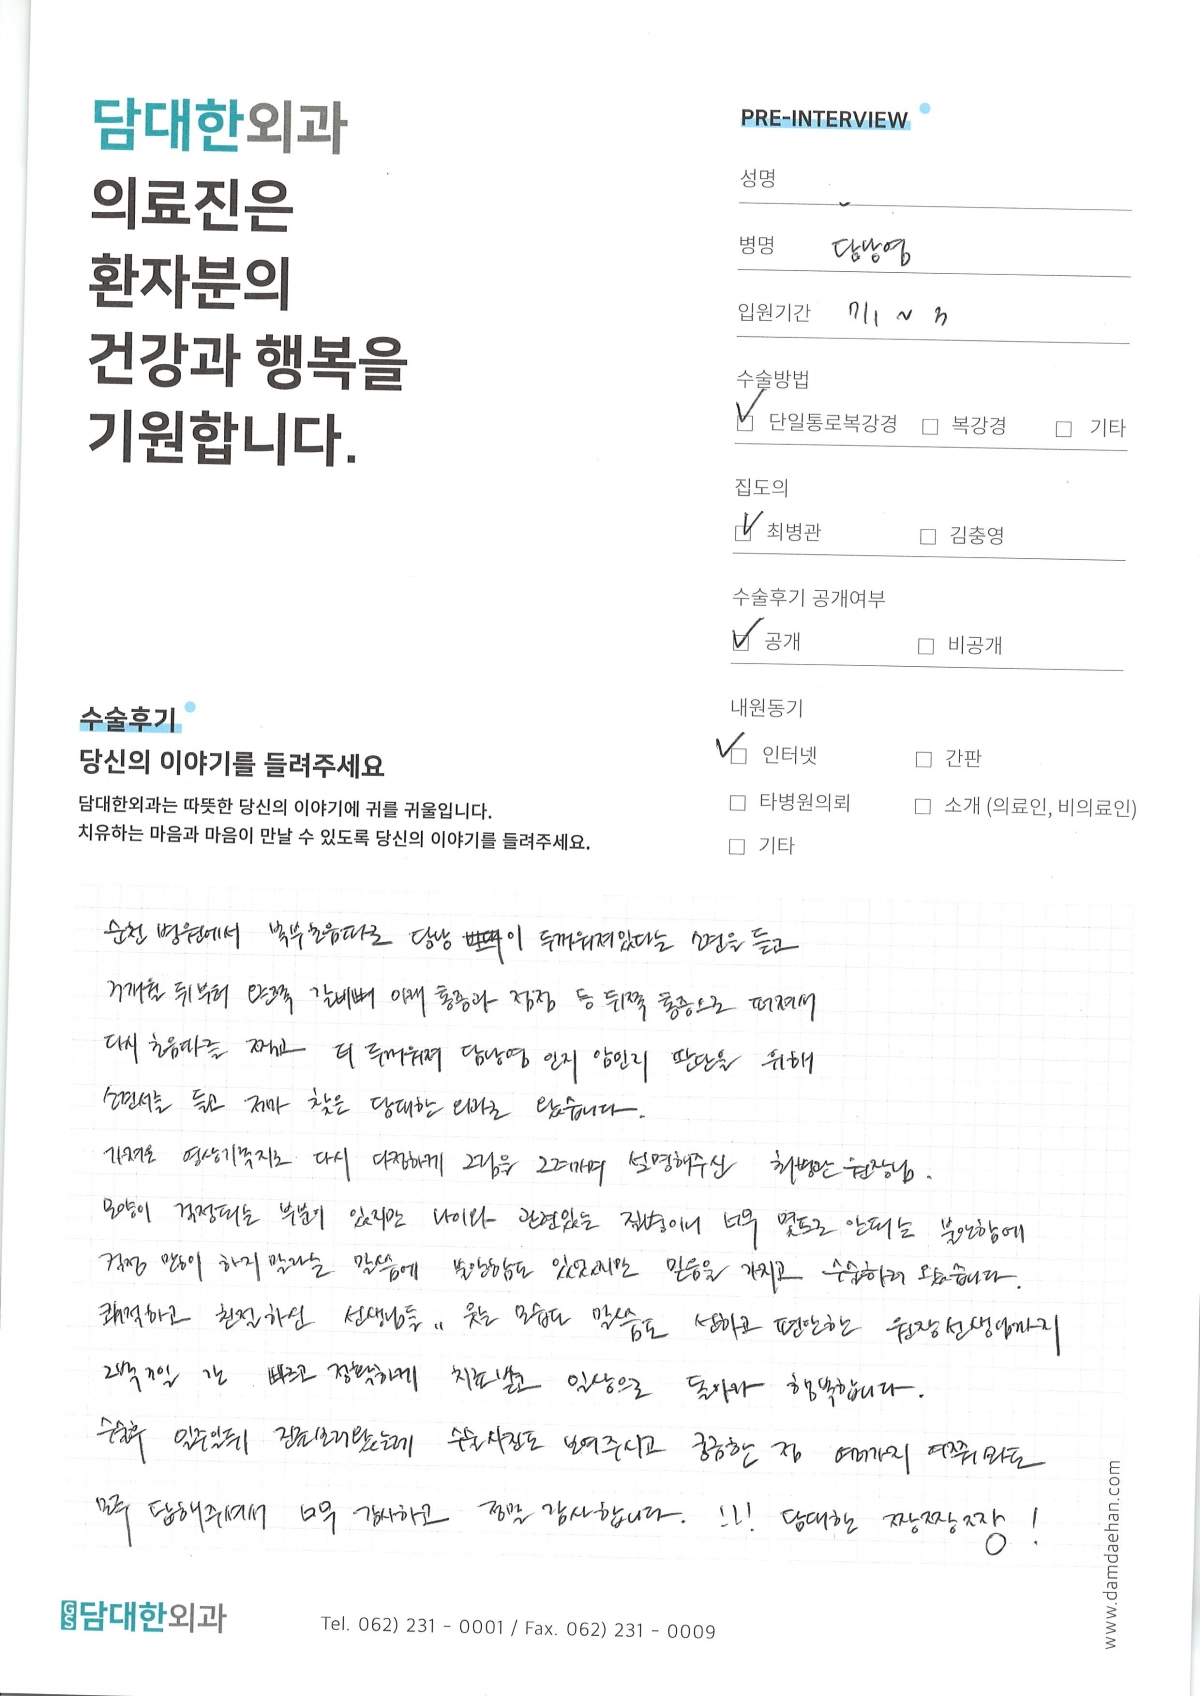 담대한외과
의료진은
환자분의
건강과 행복을
기원합니다.
PRE-INTERVIEW
성명
병명 담낭염
입원기간 7/1 ~ 3
수술방법
단일통로복강경 복강경 기타
집도의
최병관 김충영
수술후기 공개여부
공개 비공개
내원동기
인터넷 간판
타병원의뢰 소개 (의료인, 비의료인)
기타
수술후기
당신의 이야기를 들려주세요
담대한외과는 따뜻한 당신의 이야기에 귀를 귀울입니다.
치유하는 마음과 마음이 만날 수 있도록 당신의 이야기를 들려주세요.
순천 병원에서 복부초음파로 담낭 이 두꺼워져있다는 소견을 듣고
개월 뒤부터 왼쪽 갈비뼈 아래 통증과 점점 등 뒤쪽 통증으로 퍼져서
다시 초음파를 찍고 더 두꺼워져 담낭염 인지 암인지 판단을 위해
소견서를 듣고 찾은 담대한 외과로 왔습니다.
가져온 영상기록지로 다시 다정하게 그림을 그려가며 설명해주신 최병관 원장님.
모양이 걱정되는 부분이 있지만 나이와 관련있는 질병이니 너무 안되는 불안함에
걱정 많이 하지말라는 말씀에 불안함도 있었지만 믿음을 가지고 수술하러 왔습니다.
쾌적하고 친절하신 선생님들.. 웃는 모습도 말씀도 선하고 편안한 원장선생님까지
2박3일 간 빠르고 정확하게 치료받고 일상으로 돌아와 행복합니다.
수술후 일주일뒤 진료보러왔는데 수술사진도 보여주시고 궁금한 점 여러가지 여쭤봐도
모두 답해주셔서 너무 감사하고 정말 감사합니다. !!! 담대한 짱짱짱!
GS 담대한외과
Tel. 062) 231 - 0001 / Fax. 062) 231 - 0009
www.damdaehan.com